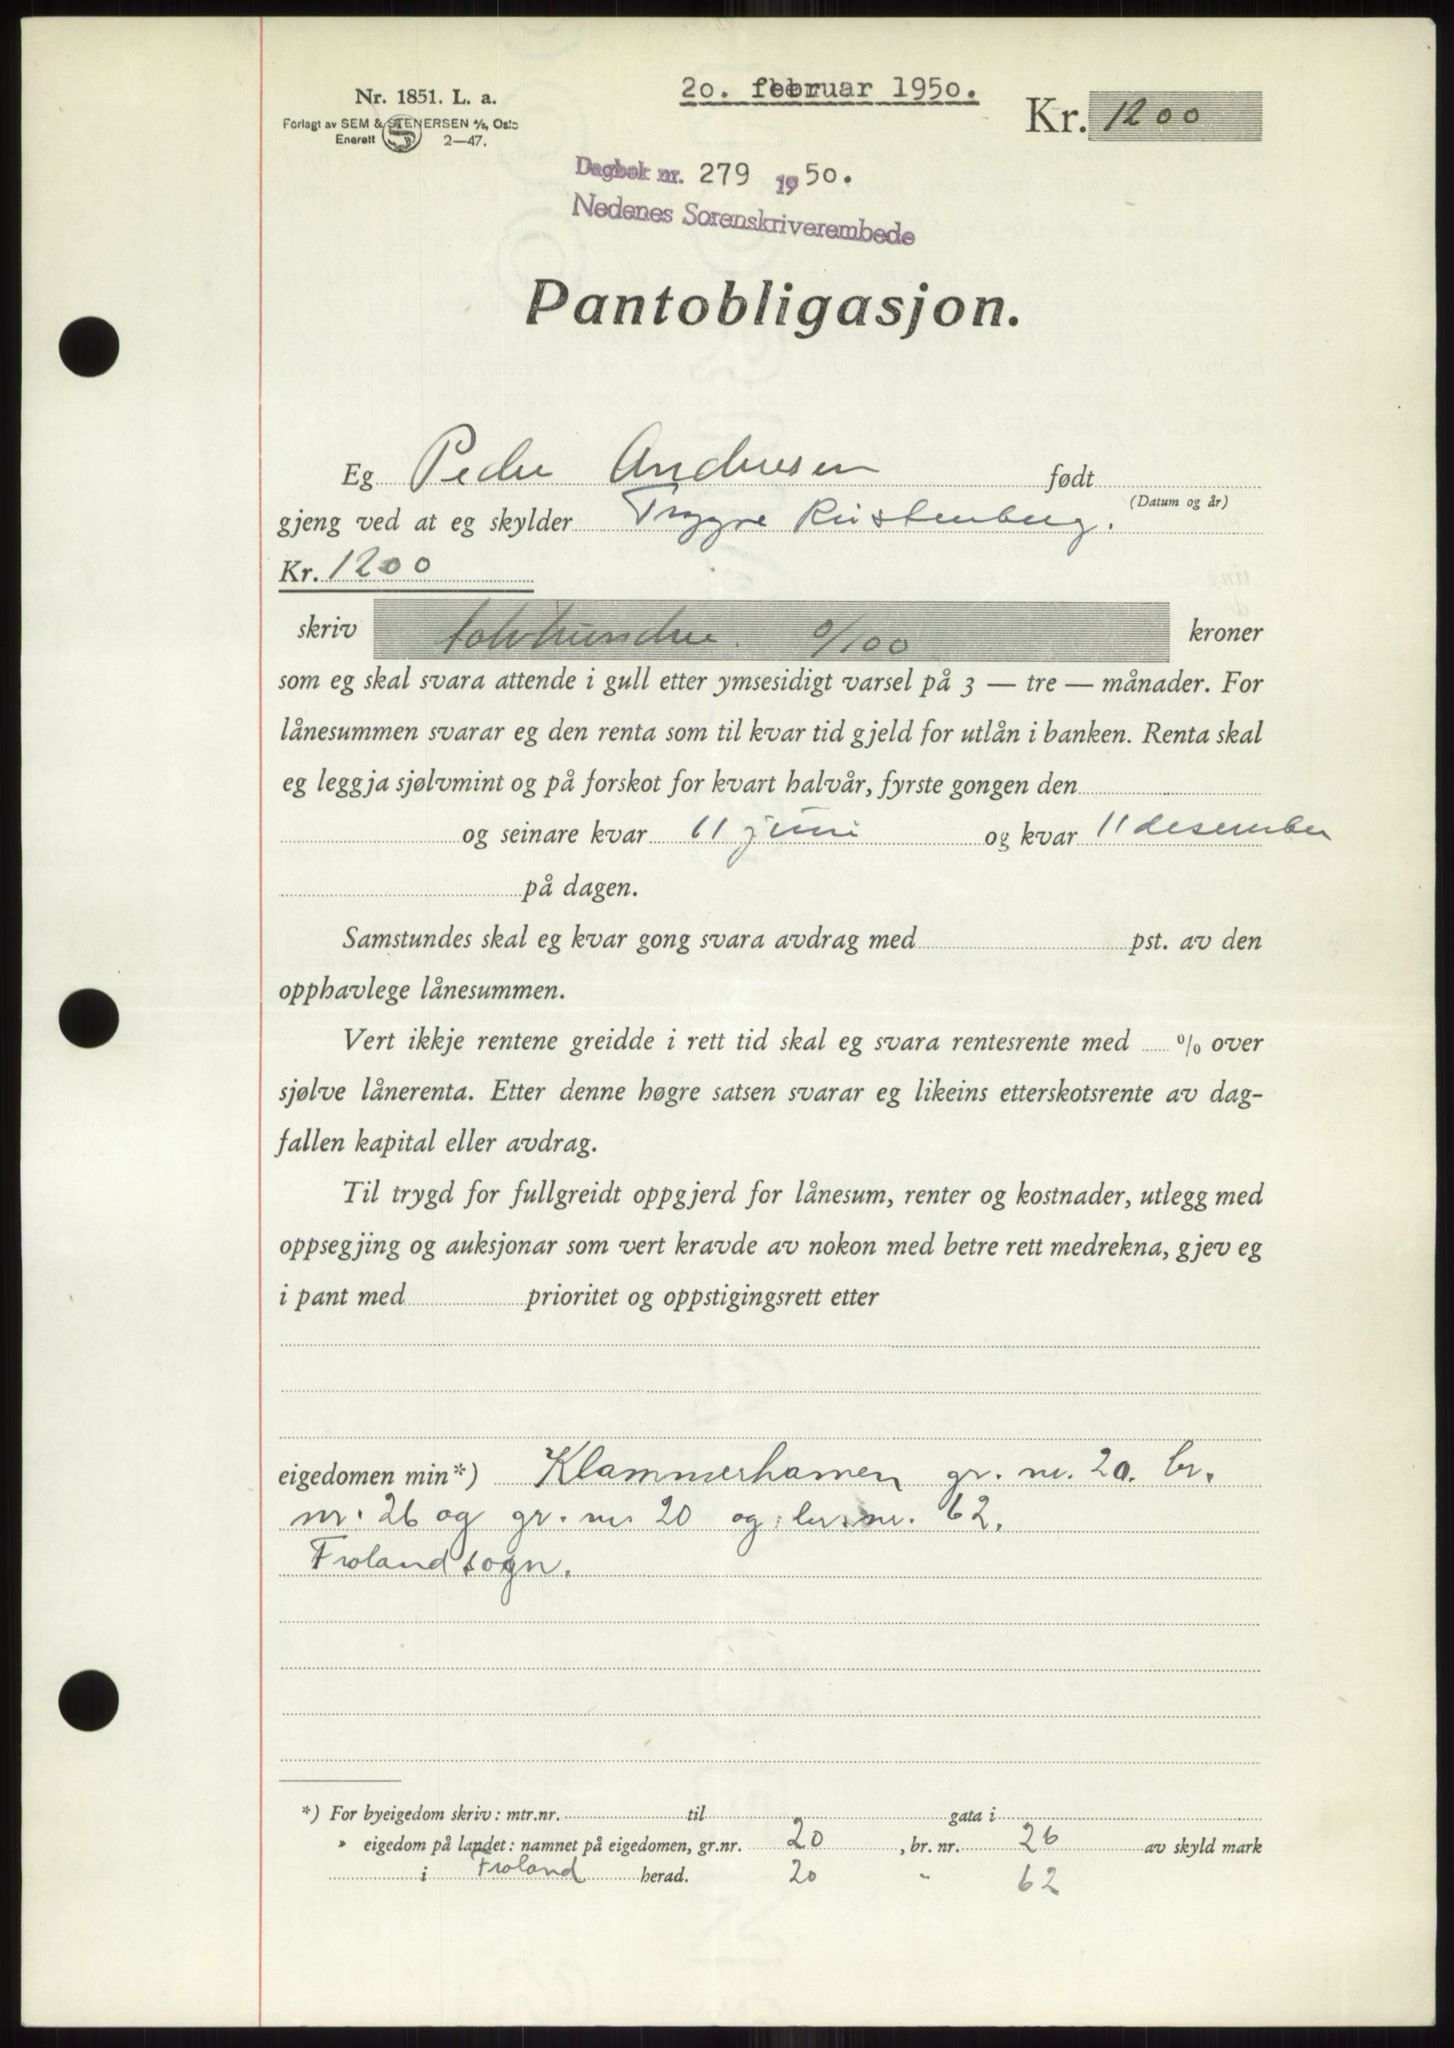 20. februar 1950.
Nr. 1851. L. a.
Forlagt av SEM & STENERSEN A/S, Oslo
Enerett S 2—47.
Kr. 1200
Dagbok nr. 279 1950.
Nedenes Sorenskriverembede
Pantobligasjon.
Eg Peder Andresen født
(Datum og år)
gjeng ved at eg skylder Trygve Rustenberg.
Kr. 1200
skriv tolvhundre 0/100 kroner
som eg skal svara attende i gull etter ymsesidigt varsel på 3 — tre — månader. For
lånesummen svarar eg den renta som til kvar tid gjeld for utlån i banken. Renta skal
eg leggja sjølvmint og på forskot for kvart halvår, fyrste gongen den
og seinare kvar 11 juni og kvar 11 desember
på dagen.
Samstundes skal eg kvar gong svara avdrag med pst. av den
opphavlege lånesummen.
Vert ikkje rentene greidde i rett tid skal eg svara rentesrente med % over
sjølve lånerenta. Etter denne høgre satsen svarar eg likeins etterskotsrente av dag-
fallen kapital eller avdrag.
Til trygd for fullgreidt oppgjerd for lånesum, renter og kostnader, utlegg med
oppsegjing og auksjonar som vert kravde av nokon med betre rett medrekna, gjev eg
i pant med prioritet og oppstigingsrett etter
eigedomen min*) Klammerhamen gr. nr. 20. br.
nr. 26 og gr. nr 20 og br. nr. 62.
Froland sogn.
*) For byeigedom skriv: mtr.nr. til gata i
» eigedom på landet: namnet på eigedomen, gr.nr. 20, br. nr. 26 av skyld mark
i Froland herad. 20 " 62